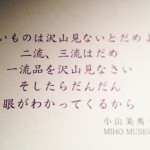 いものは沢山見ないとだめ
二流、三流はだめ
一流品を沢山見なさい
そしたらだんだん
眼がわかってくるから
小山美秀
MIHO MUSE